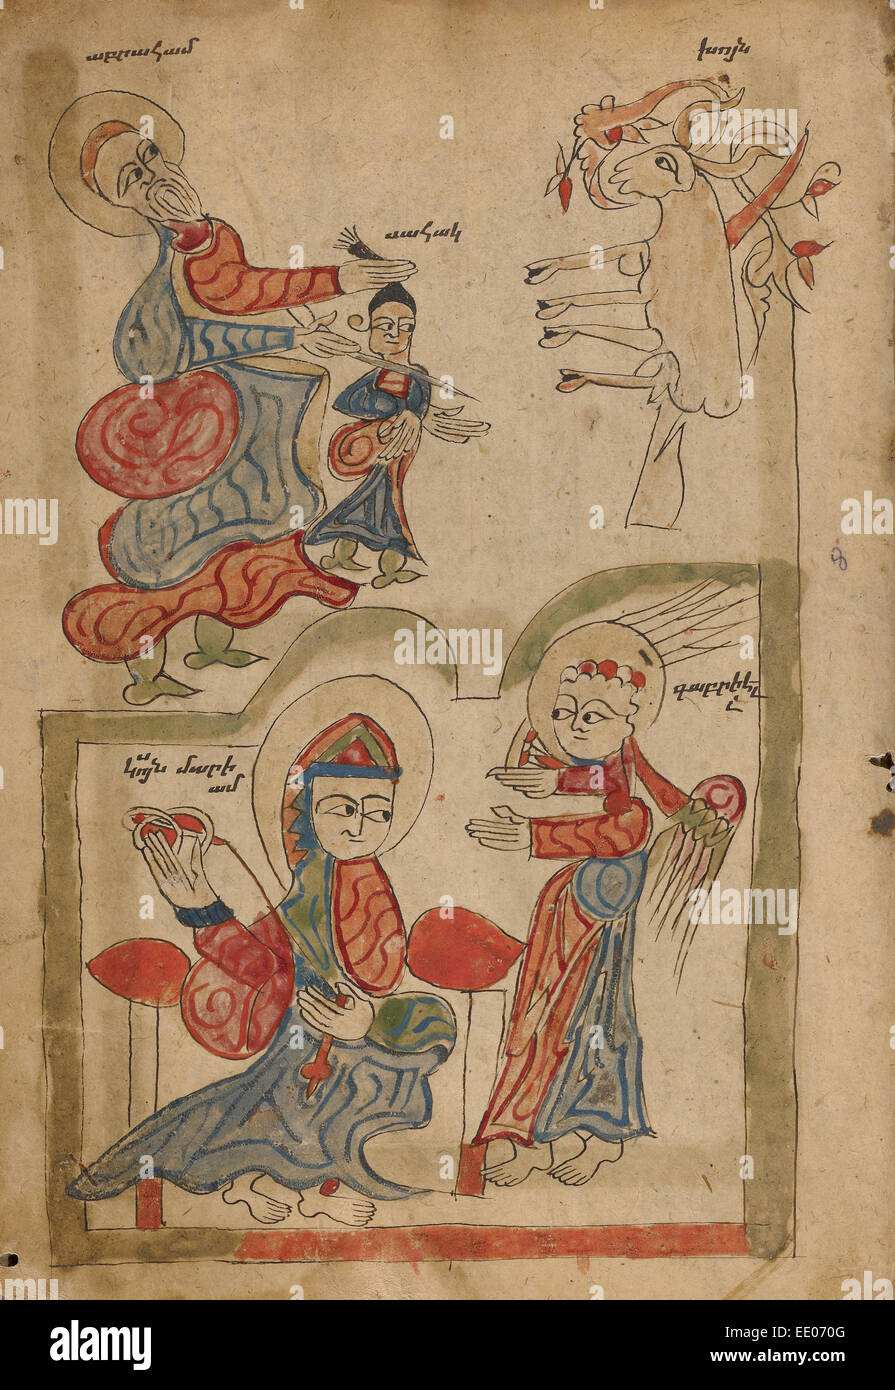 աբրահամ
խոյն
սահակ
գաբրիէլ
կոյսն մարի
ամ
8
alamy
Image ID: EE070G
www.alamy.com